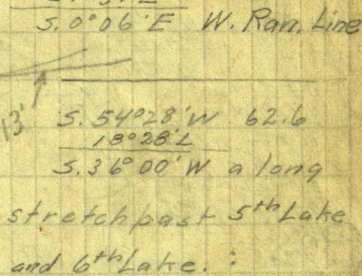 S. 0°06'E W. Ran. Line
13'
S. 54°28'W 62.6
18°28'L
S. 36°00'W along
stretch past 5th Lake
and 6th Lake. :